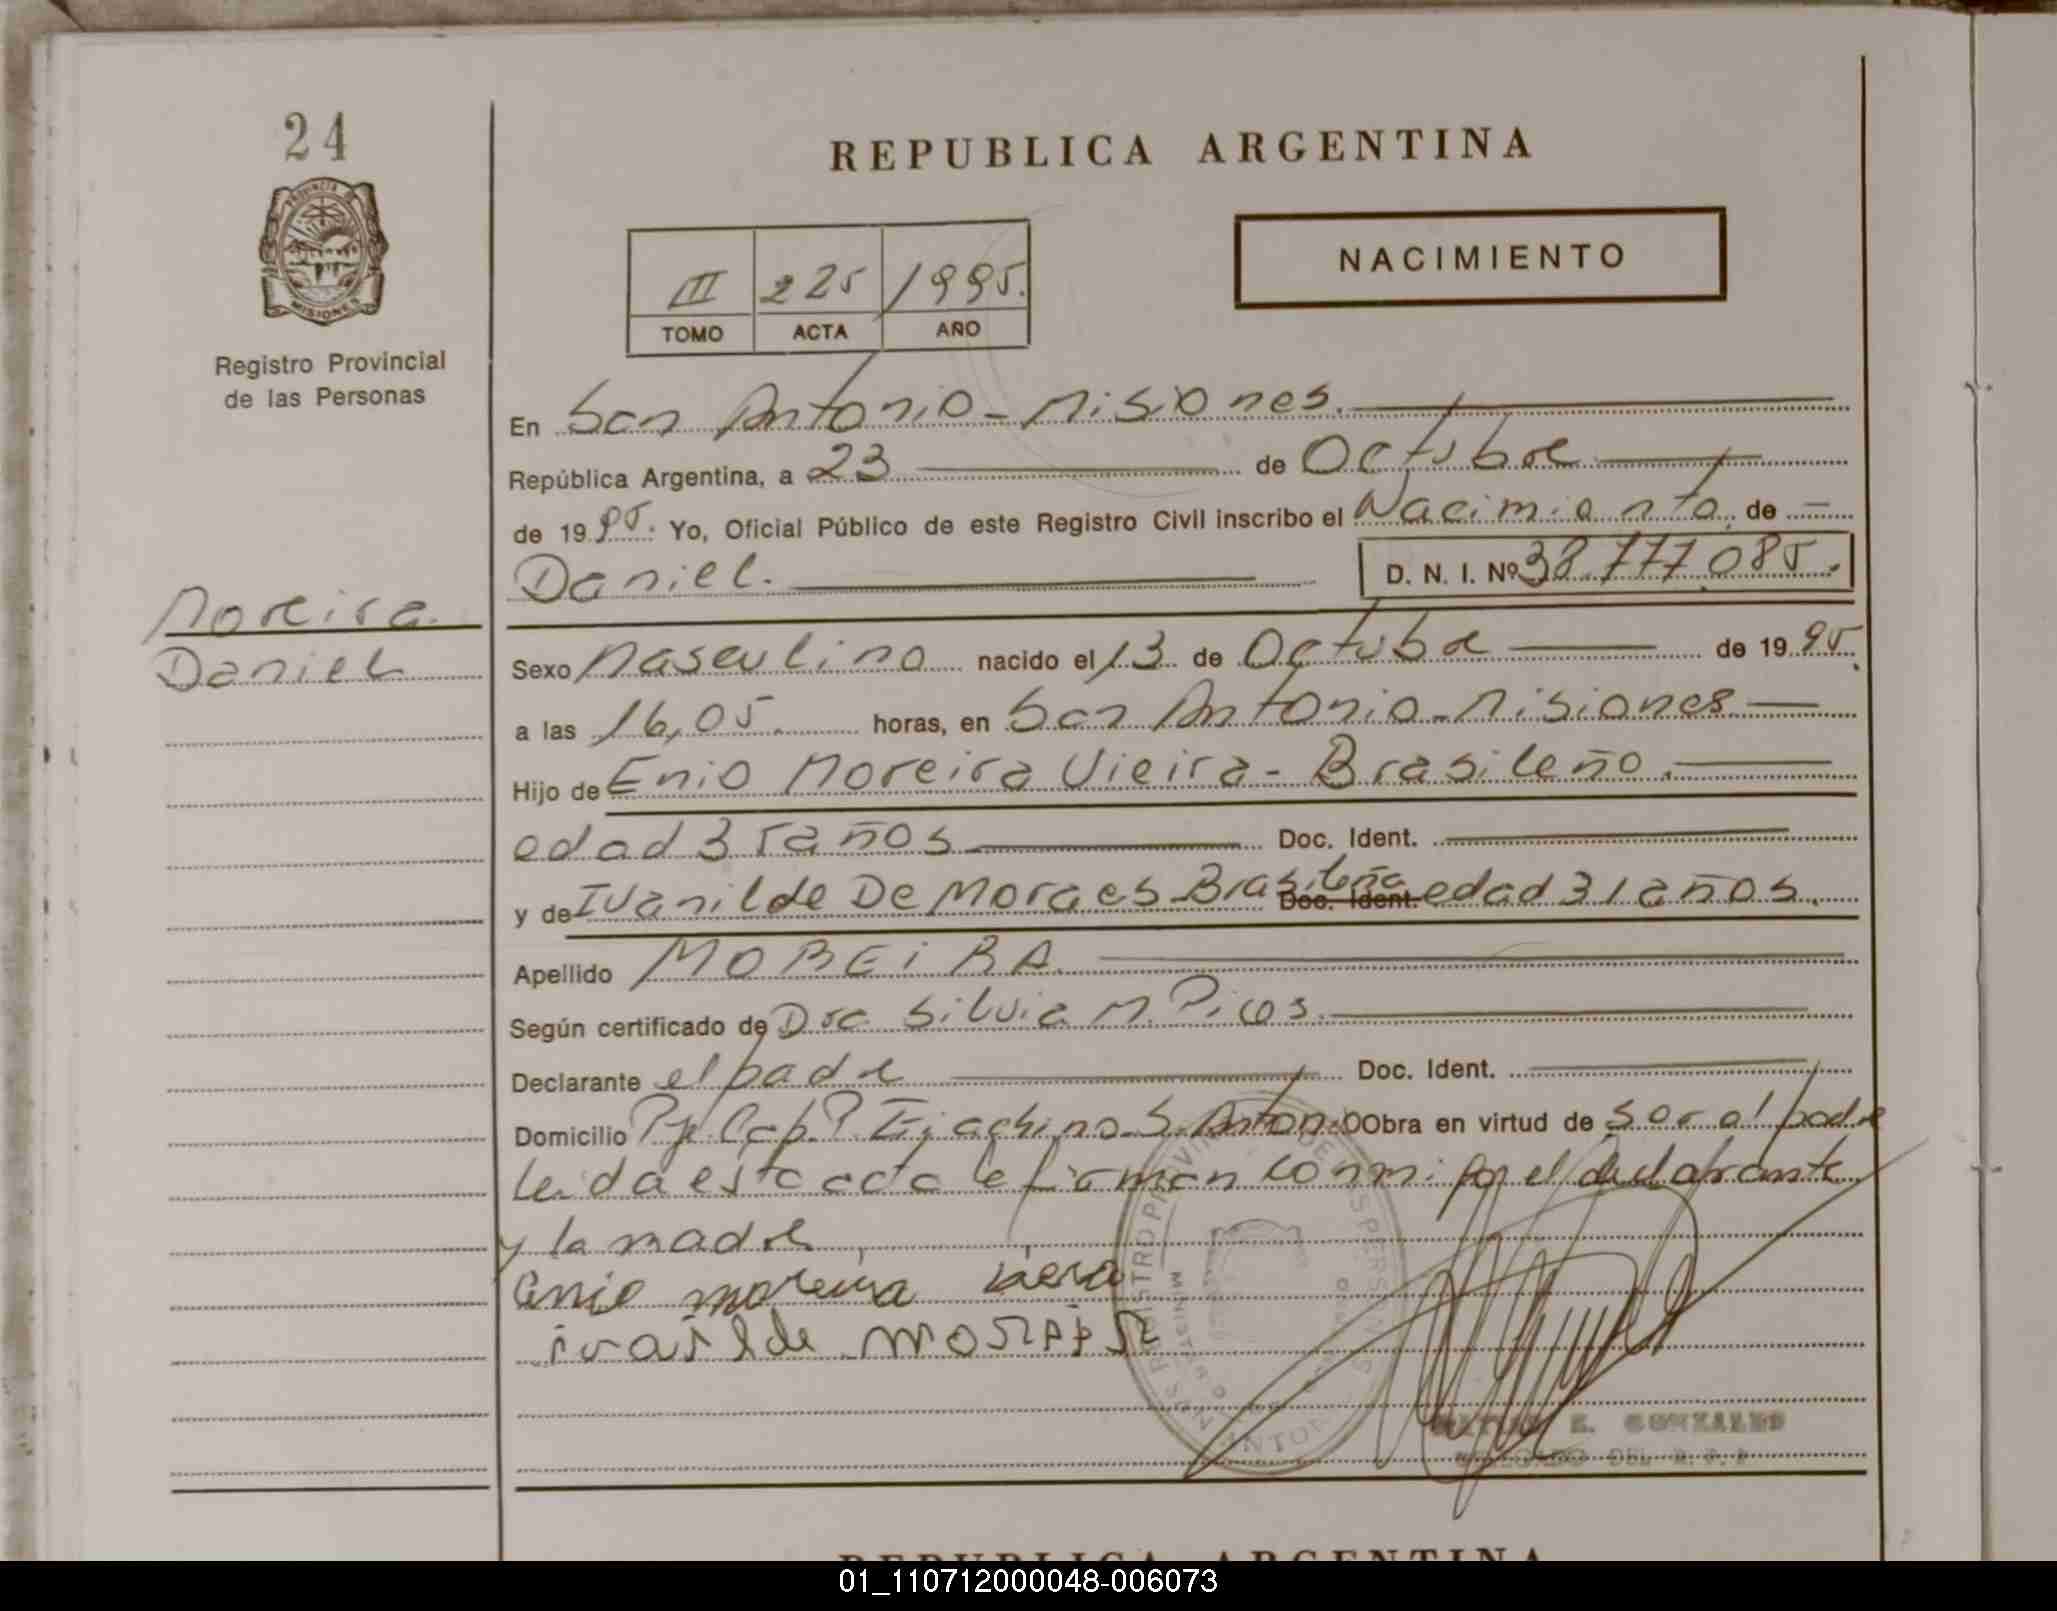 24
REPUBLICA ARGENTINA
PROVINCIA DE
MISIONES
NACIMIENTO
III 225 1995.
TOMO ACTA AÑO
Registro Provincial
de las Personas
En San Antonio - Misiones.
República Argentina, a 23 de Octubre
de 1995. Yo, Oficial Público de este Registro Civil inscribo el Nacimiento de
Daniel. D. N. I. Nº 38.777.085.
Moreira.
Daniel
Sexo Masculino nacido el 13 de Octubre de 1995.
a las 16,05 horas, en San Antonio - Misiones
Hijo de Enio Moreira Vieira - Brasileño.
edad 35 años Doc. Ident.
y de Ivanilde De Moraes Brasileña Doc. Ident. edad 31 años.
Apellido MOREiRA
Según certificado de Dra Silvia M. Picos.
Declarante el padre Doc. Ident.
Domicilio Pje. Cap. P. S. Antonio Obra en virtud de ser el padre
Leida esta acta le firman conmi por el declarante
y la madre
Enio moreira
ivanilde
E. GONZALES
DELEGADO DEL R. P. P
REPUBLICA ARGENTINA
01_110712000048-006073